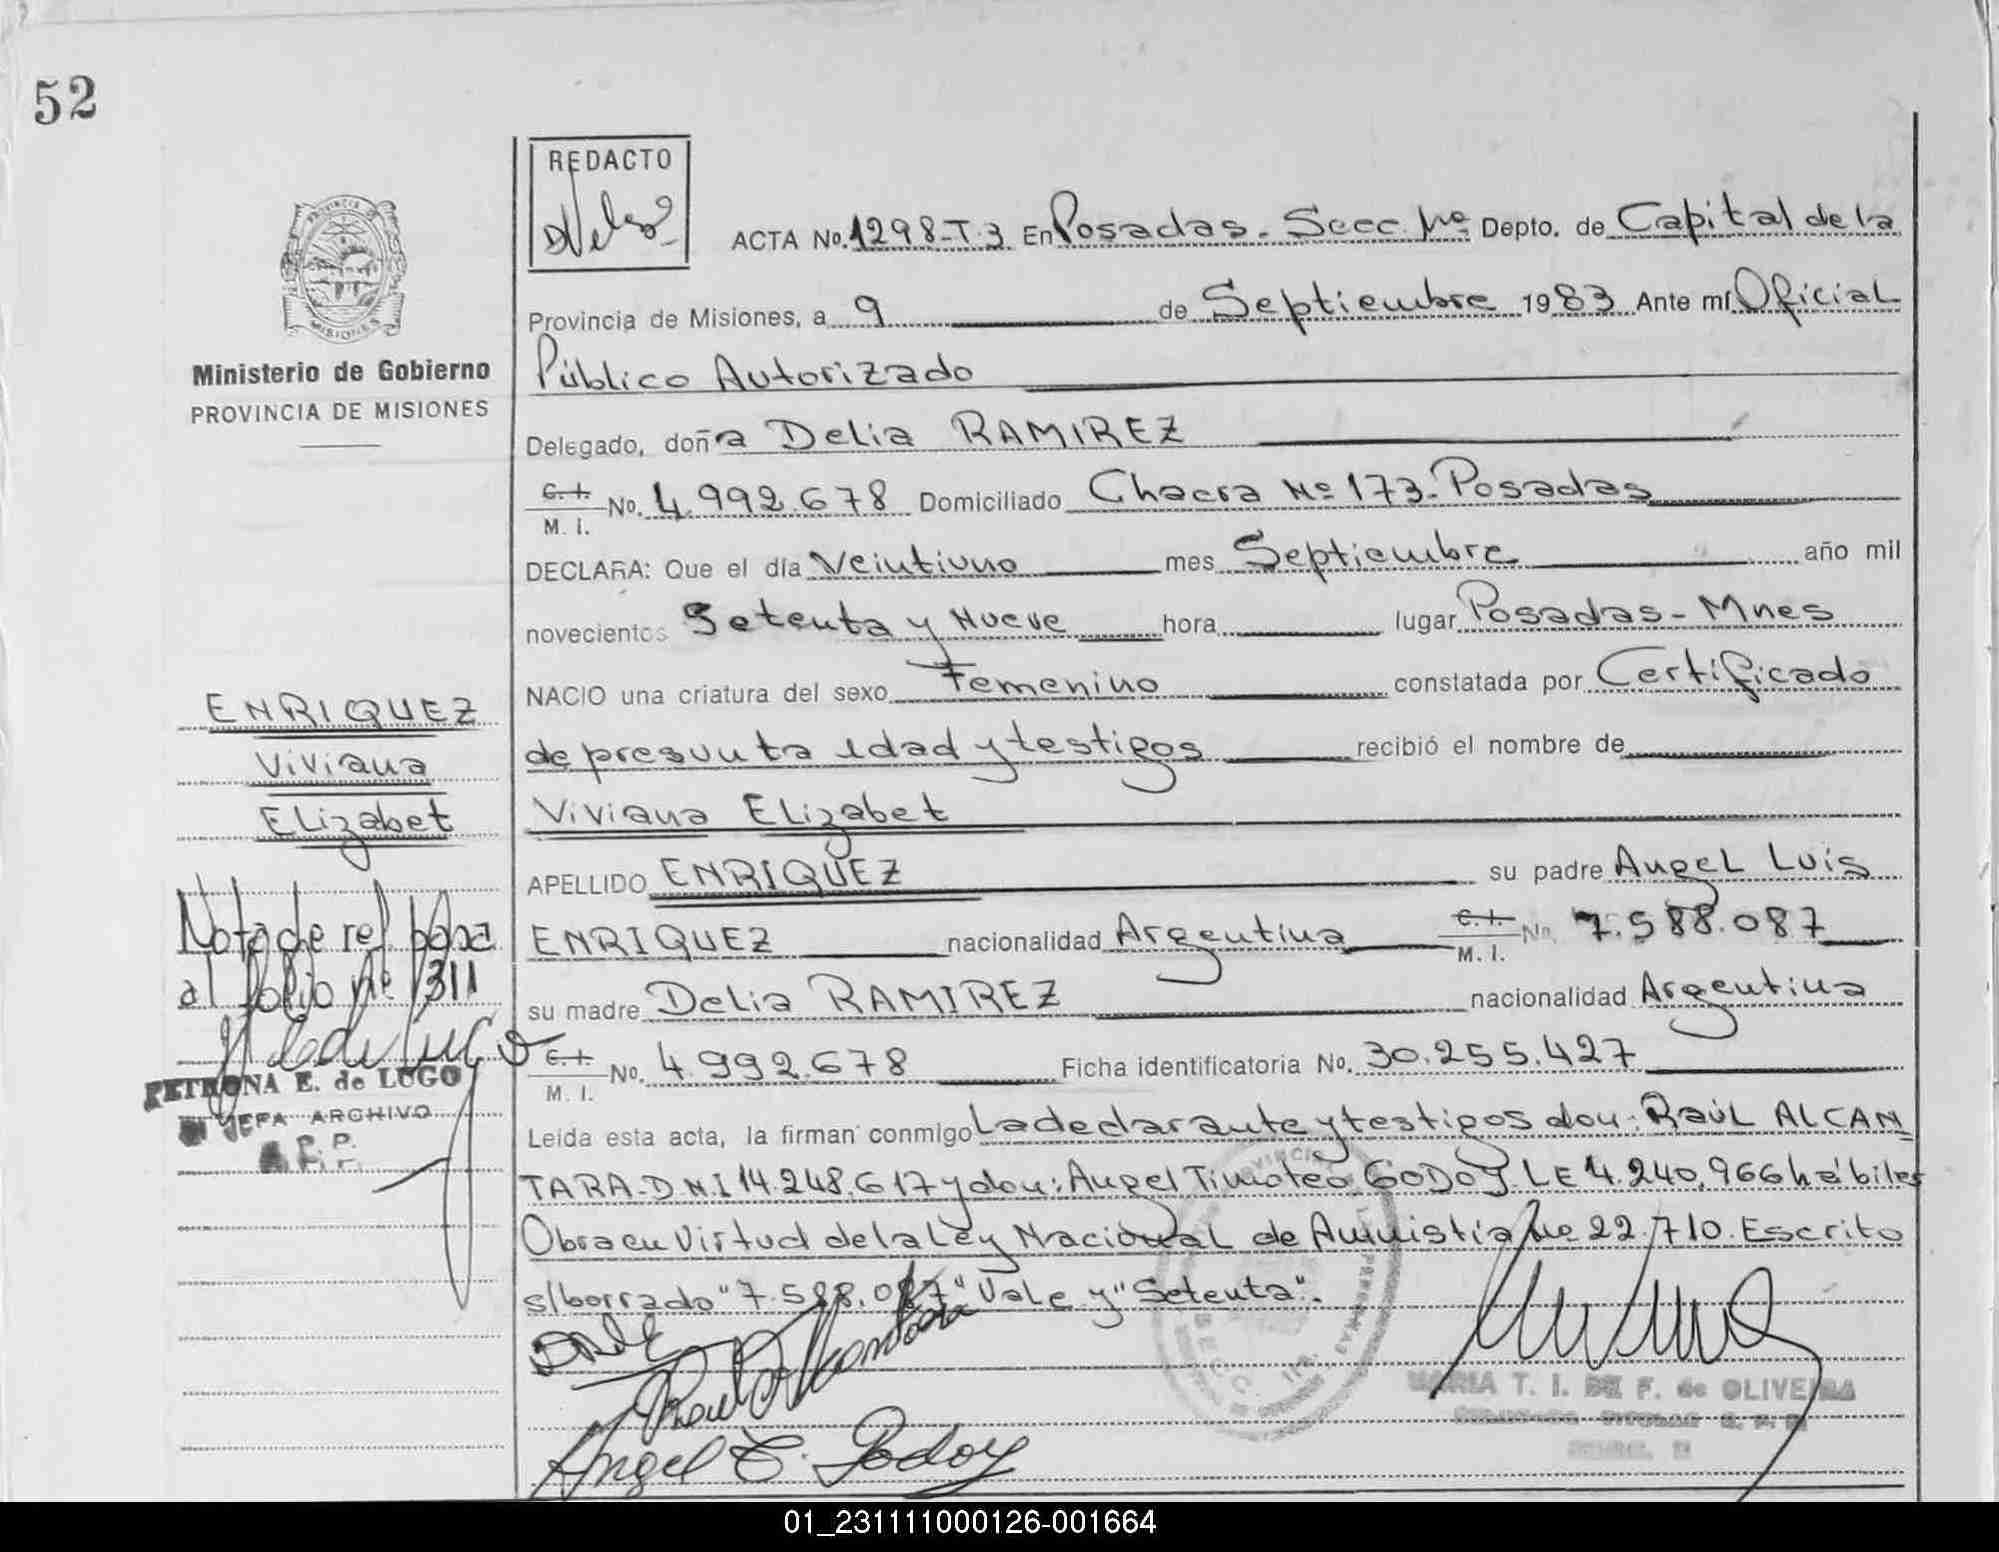 52
REDACTO
ACTA No. 1298-T.3 En Posadas - Secc. 1ra Depto. de Capital de la
Provincia de Misiones, a 9 de Septiembre 1983 Ante mí Oficial
Público Autorizado
Ministerio de Gobierno
PROVINCIA DE MISIONES
Delegado, doña Delia RAMIREZ
C. I. No. 4.992.678 Domiciliado Chacra Nº 173. Posadas
M. I.
DECLARA: Que el día Veintiuno mes Septiembre año mil
novecientos Setenta y Nueve hora lugar Posadas - Mnes
NACIO una criatura del sexo Femenino constatada por Certificado
de presunta edad y testigos recibió el nombre de
ENRIQUEZ
Viviana
Elizabet
Viviana Elizabet
APELLIDO ENRIQUEZ su padre Angel Luis
ENRIQUEZ nacionalidad Argentina C. I. No. 7.588.087
M. I.
su madre Delia RAMIREZ nacionalidad Argentina
C. I. No. 4.992.678 Ficha identificatoria No. 30.255.427
M. I.
Nota de ref pasa
al folio Nº 311
PETRONA E. de LUGO
JEFA ARCHIVO
R. P. P.
Leida esta acta, la firman conmigo La declarante y testigos don: Raúl ALCAN
TARA. D.N.I 14.248.617 y don: Angel Timoteo GODOY. LE 4.240.966 hábiles
Obra en Virtud de la Ley Nacional de Amnistía Nº 22.710. Escrito
s/borrado "7.588.087" Vale y "Setenta".
Angel T. Godoy
MARIA T. I. DE F. de OLIVEIRA
01_231111000126-001664